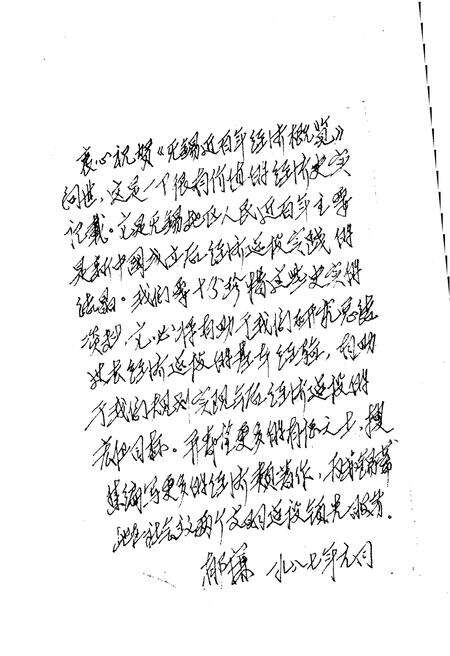 衷心祝贺《无锡近百年经济概览》
问世，这是一个很有价值的经济史实
记载。它是无锡地区人民近百年主要
是新中国成立后经济建设实践的
结晶。我们要十分珍惜这些史实的
它必将有助于我们研究总结
经济建设的基本经验，有助
于我们规划实现今后经济建设的
目标。希望更多的有
编写更多的经济类著作，
社会主义两个文明建设
一九八七年元月